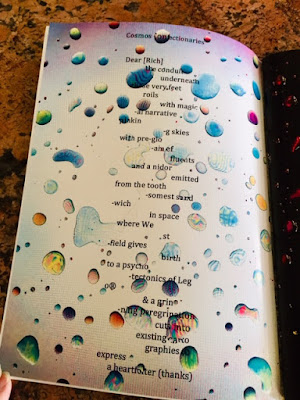 Cosmos Confectionaries
Dear [Rich]
the conduit
underneath
the very feet
roils
with magic
-al narrative
junkin
-g skies
with pre-glo
-am ef
fluents
and a nidor
emitted
from the tooth
-somest sand
-wich
in space
where We
st
-field gives
birth
to a psycho
-tectonics of Leg
o®
& a grin
-ning peregrination
cuts into
existing
graphies of
express
a heartfilter (thanks)